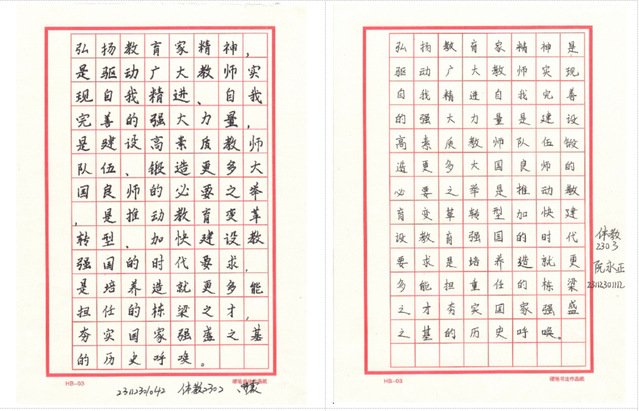 弘扬教育家精神，
是驱动广大教师实
现自我精进、自我
完善的强大力量，
是建设高素质教师
队伍、锻造更多大
国良师的必要之举
，是推动教育变革
转型、加快建设教
强国的时代要求，
是培养造就更多能
担任的栋梁之才，
夯实国家强盛之基
的历史呼唤。
HB-03
硬笔书法作品纸
2311231042 体教2302
弘扬教育家精神是
驱动广大教师实现
自我精进自我完善
的强大力量是建设
高素质教师队伍锻
造更多大国良师的
必要之举是推动教
育变革转型加快建
设教育强国的时代
要求是培养造就更
多能担重任的栋梁
之才夯实国家强盛
之基的历史呼唤。
体教
2303
阮永正
23112301112
HB-03
硬笔书法作品纸